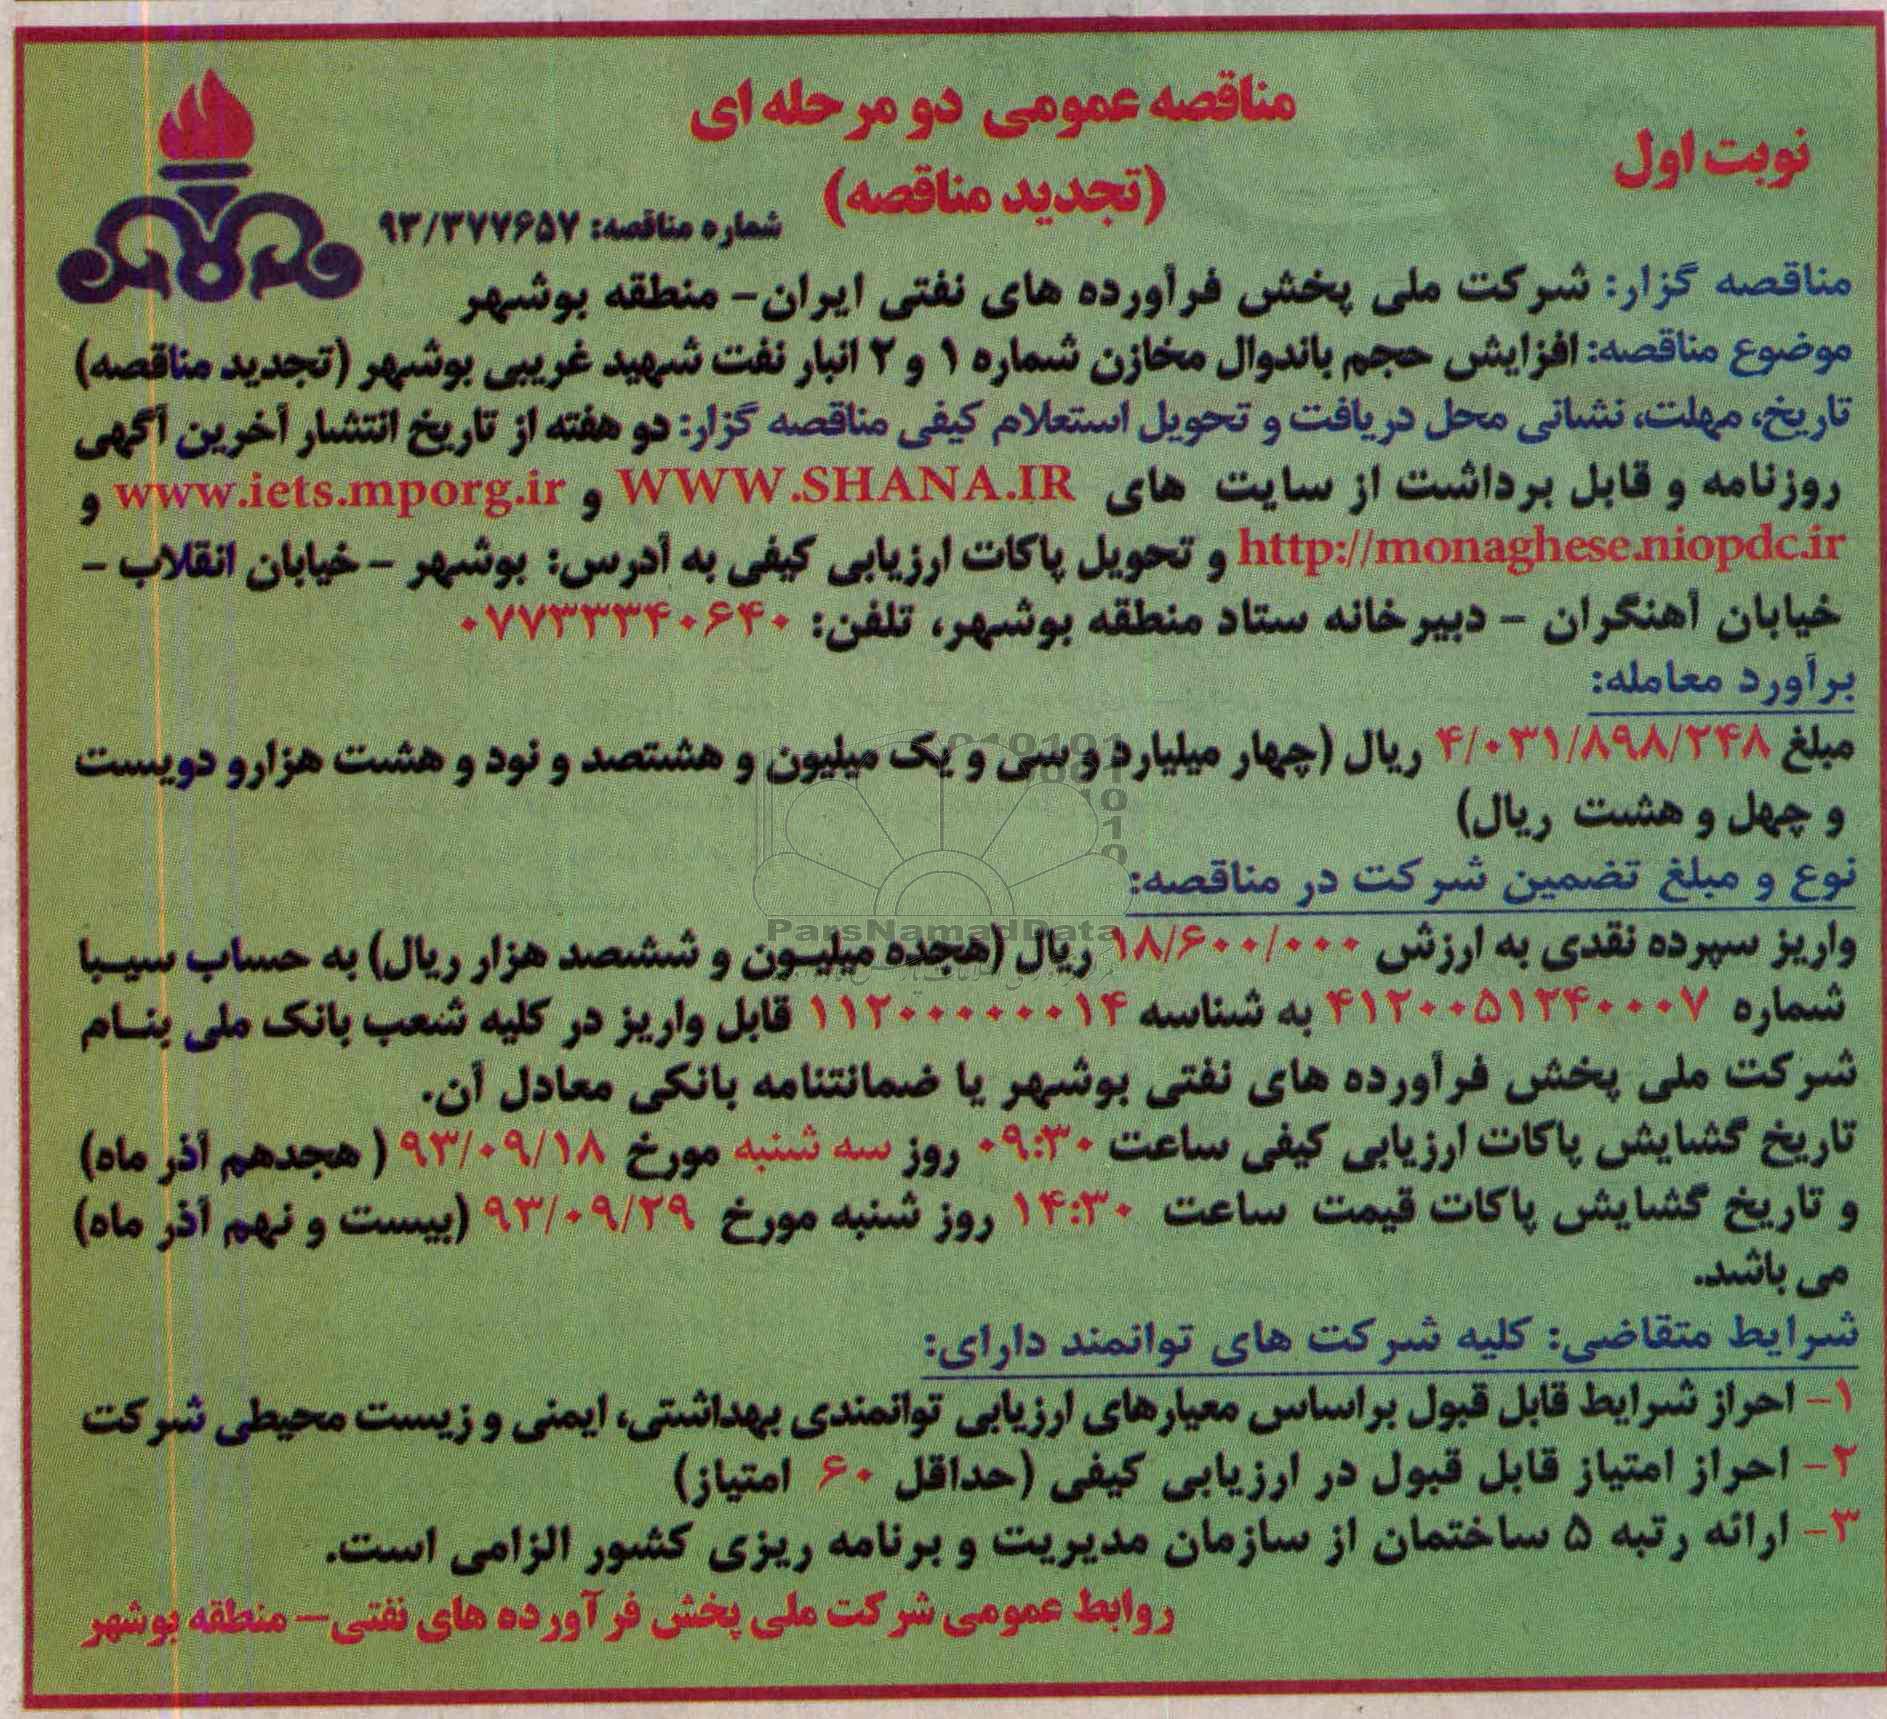 نوبت اول
مناقصه عمومی دو مرحله ای
(تجدید مناقصه)
شماره مناقصه: ۹۳/۳۷۷۶۵۷
مناقصه گزار: شرکت ملی پخش فرآورده های نفتی ایران- منطقه بوشهر
موضوع مناقصه: افزایش حجم باندوال مخازن شماره ۱ و ۲ انبار نفت شهید غریبی بوشهر (تجدید مناقصه)
تاریخ، مهلت، نشانی محل دریافت و تحویل استعلام کیفی مناقصه گزار: دو هفته از تاریخ انتشار آخرین آگهی
روزنامه و قابل برداشت از سایت های WWW.SHANA.IR و www.iets.mporg.ir و
http://monaghese.niopdc.ir و تحویل پاکات ارزیابی کیفی به آدرس: بوشهر - خیابان انقلاب -
خیابان آهنگران - دبیرخانه ستاد منطقه بوشهر، تلفن: ۰۷۷۳۳۳۴۰۶۴۰
برآورد معامله:
مبلغ ۴/۰۳۱/۸۹۸/۲۴۸ ریال (چهار میلیارد و سی و یک میلیون و هشتصد و نود و هشت هزارو دویست
و چهل و هشت ریال)
نوع و مبلغ تضمین شرکت در مناقصه:
واریز سپرده نقدی به ارزش ۱۸/۶۰۰/۰۰۰ ریال (هجده میلیون و ششصد هزار ریال) به حساب سیبا
شماره ۴۱۲۰۰۵۱۲۴۰۰۰۷ به شناسه ۱۱۲۰۰۰۰۰۰۰۱۴ قابل واریز در کلیه شعب بانک ملی بنام
شرکت ملی پخش فرآورده های نفتی بوشهر یا ضمانتنامه بانکی معادل آن.
تاریخ گشایش پاکات ارزیابی کیفی ساعت ۰۹:۳۰ روز سه شنبه مورخ ۹۳/۰۹/۱۸ ( هجدهم آذر ماه)
و تاریخ گشایش پاکات قیمت ساعت ۱۴:۳۰ روز شنبه مورخ ۹۳/۰۹/۲۹ (بیست و نهم آذر ماه)
می باشد.
شرایط متقاضی: کلیه شرکت های توانمند دارای:
۱- احراز شرایط قابل قبول براساس معیارهای ارزیابی توانمندی بهداشتی، ایمنی و زیست محیطی شرکت
۲- احراز امتیاز قابل قبول در ارزیابی کیفی (حداقل ۶۰ امتیاز)
۳- ارائه رتبه ۵ ساختمان از سازمان مدیریت و برنامه ریزی کشور الزامی است.
روابط عمومی شرکت ملی پخش فرآورده های نفتی- منطقه بوشهر
ParsNamadData